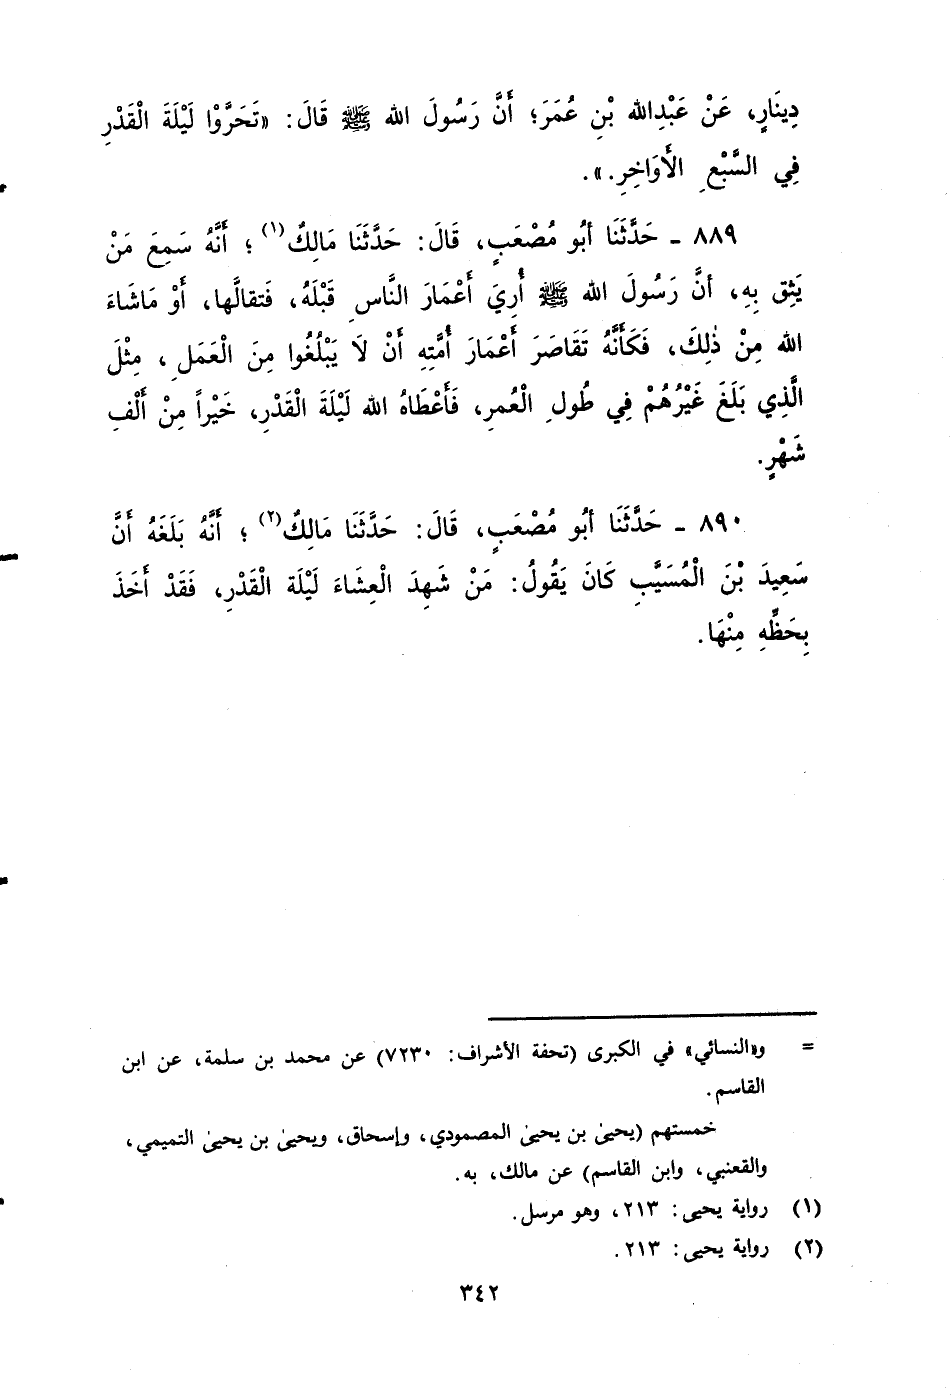 دِينَارٍ، عَنْ عَبْدِالله بْنِ عُمَرَ؛ أَنَّ رَسُولَ الله ﷺ قَالَ: «تَحَرَّوْا لَيْلَةَ الْقَدْرِ
فِي السَّبْعِ الْأَوَاخِرِ.».
٨٨٩ ـ حَدَّثَنَا أبُو مُصْعَبٍ، قَالَ: حَدَّثَنَا مَالِكٌ(١) ؛ أَنَّهُ سَمِعَ مَنْ
يَثِق بِهِ، أنَّ رَسُولَ الله ﷺ أُرِيَ أَعْمَارَ النَّاسِ قَبْلَهُ، فَتقالَّها، أَوْ مَاشَاءَ
الله مِنْ ذٰلِكَ، فَكَأَنَّهُ تَقَاصَرَ أَعْمَارَ أُمَّتِهِ أَنْ لَا يَبْلُغُوا مِنَ الْعَمَلِ ، مِثْلَ
الَّذِي بَلَغَ غَيْرُهُمْ فِي طُولِ الْعُمرِ، فَأَعْطَاهُ الله لَيْلَةَ الْقَدْرِ، خَيْراً مِنْ أَلْفِ
شَهْرٍ.
٨٩٠ ـ حَدَّثَنَا أبُو مُصْعَبٍ، قَالَ: حَدَّثَنَا مَالِكٌ(٢) ؛ أَنَّهُ بَلَغَهُ أَنَّ
سَعِيدَ بْنَ الْمُسَيَّبِ كَانَ يَقُولُ: مَنْ شَهِدَ الْعِشَاءَ لَيْلَة الْقَدْرِ، فَقَدْ أَخَذَ
بِحَظِّهِ مِنْهَا.
= و«النسائي» في الكبرى (تحفة الأشراف: ٧٢٣٠) عن محمد بن سلمة، عن ابن
القاسم.
خمستهم (يحيىٰ بن يحيىٰ المصمودي، وإسحاق، ويحيىٰ بن يحيىٰ التميمي،
والقعنبي، وابن القاسم) عن مالك، به.
(١) رواية يحيى: ٢١٣، وهو مرسل.
(٢) رواية يحيى: ٢١٣.
٣٤٢